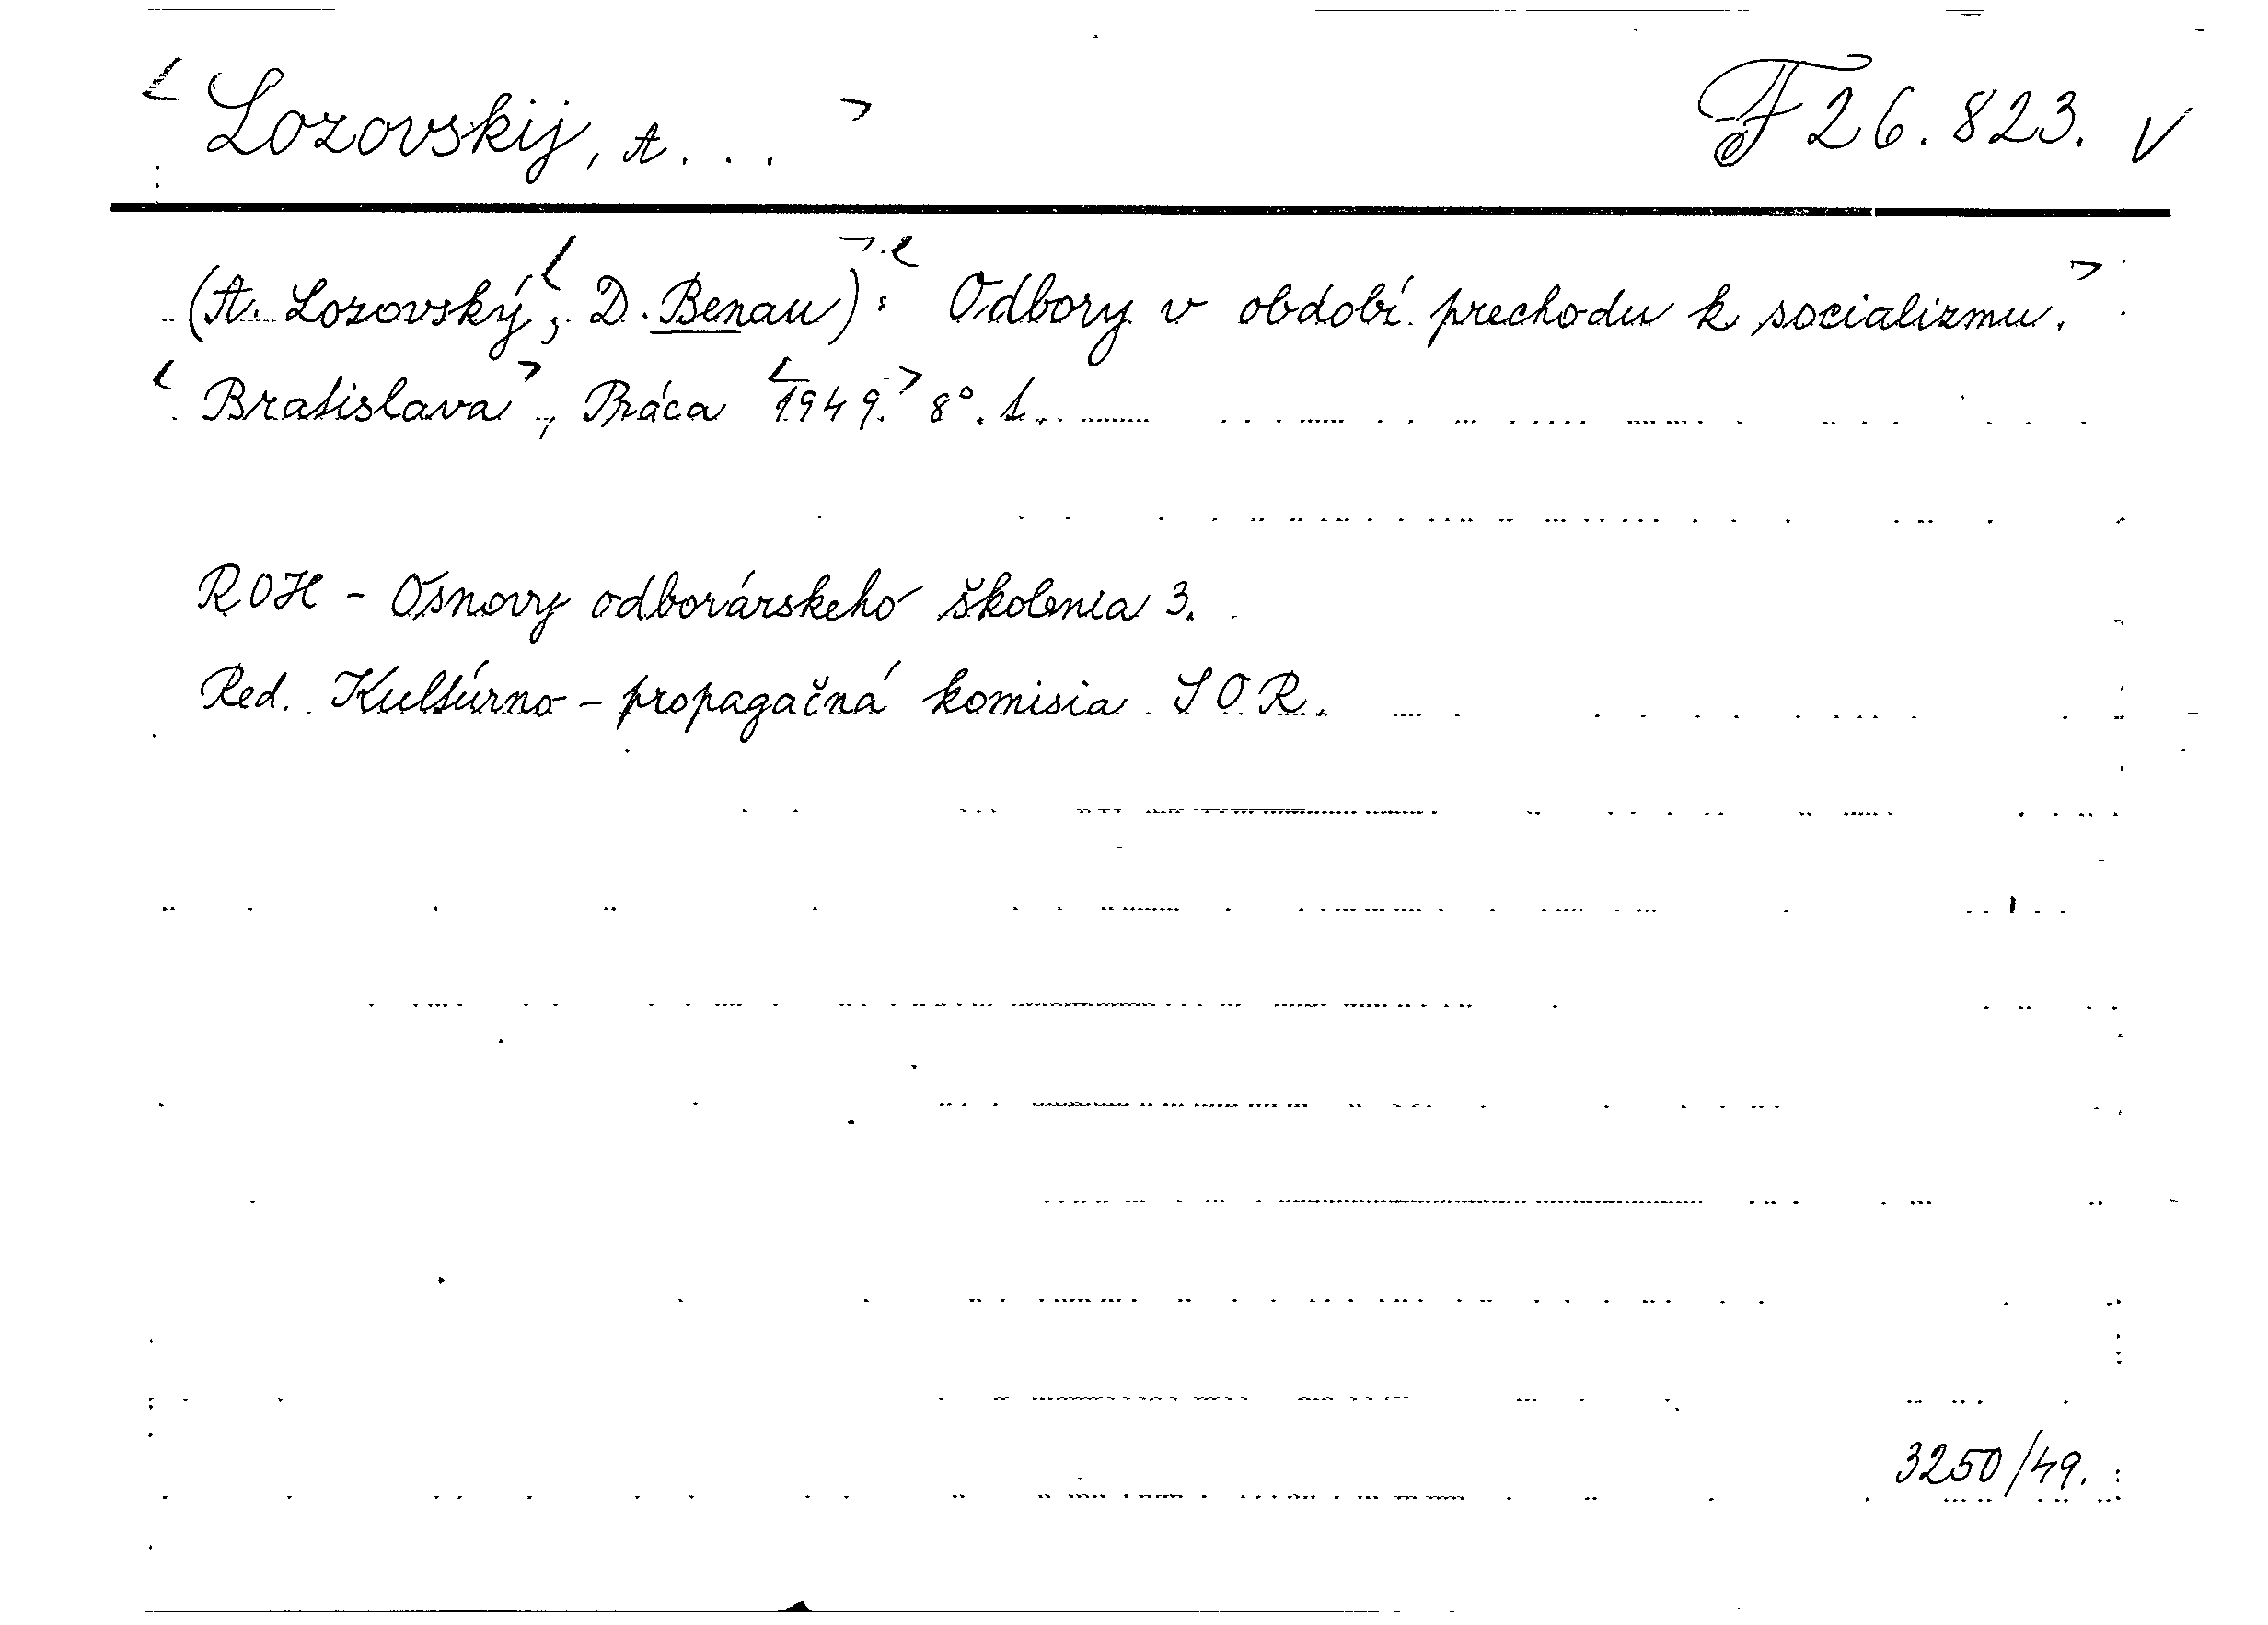 Lozovskij, A... F 26.823. V
(A. Lozovský, D. Benau): Odbory v období prechodu k socializmu.
Bratislava, Práca 1949. 8°. 1.
ROH - Osnovy odborárskeho školenia 3.
Red. Kultúrno-propagačná komisia SOR.
3250/49.